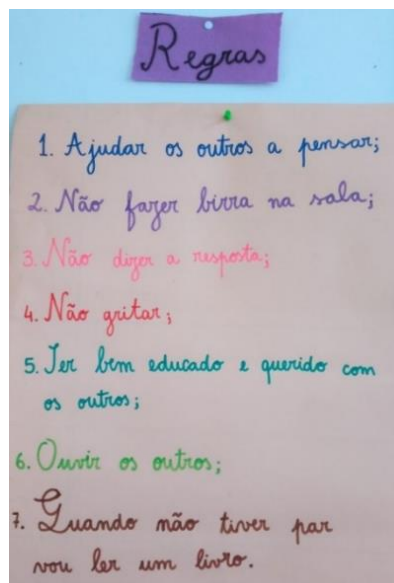 Regras
1. Ajudar os outros a pensar;
2. Não fazer birra na sala;
3. Não dizer a resposta;
4. Não gritar;
5. Ser bem educado e querido com
os outros;
6. Ouvir os outros;
7. Quando não tiver par
vou ler um livro.